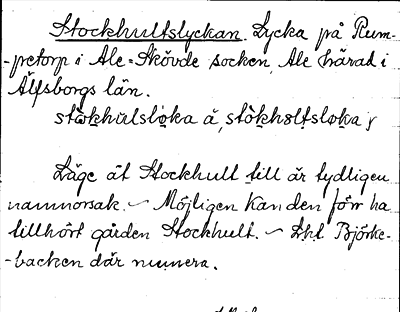 Stockhultslyckan. Lycka på Rum-
-petorp i Ale-Skövde socken, Ale härad i
Älfsborgs län.
stòkhultsloka å, stòkhəltsloka ʃ
Läge åt Stockhult till är tydligen
namnorsak. ~ Möjligen kan den förr ha
tillhört gården Stockhult. ~ Lht Björke-
-backen där numera.